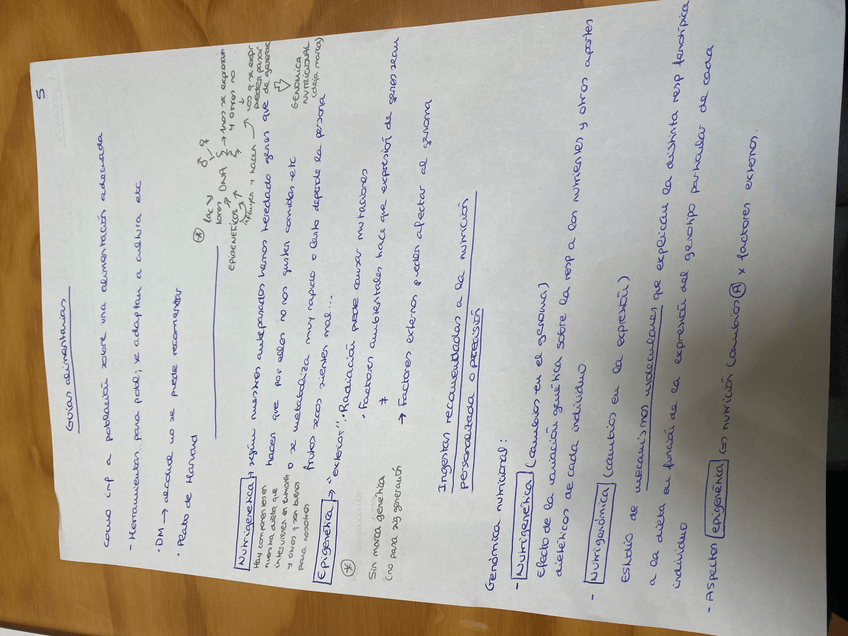 5
Guías alimentarias
como inf a población sobre una alimentación adecuada
- Herramientas para pobl; se adaptan a cultura etc
· DM → alcohol no se puede recomendar
· Plato de Harvard
Nutrigenética → según nuestros antepasados hemos heredado genes que
hacen que por ellos no nos gusten comidas etc
o se metaboliza muy rápido o lento depende la persona
frutos secos sienten mal...
Hay componentes en
nuestra dieta que
intervienen en
y otros q son buenos
para nosotros
* 
DNA → trozos se expresan
y otros no
EPIGENÉTICOS
→ los q se expr
pueden pasar
de generac
GENÓMICA
NUTRICIONAL
(deja marca)
Epigenética → "exterior"· Radiación puede causar mutaciones
· Factores ambientales hace que expresión de genes sean
≠
→ Factores externos pueden afectar al genoma
*
Sin marca genética
(no pasa sig generación
Ingestas recomendadas a la nutrición
personalizada o precisión
Genómica nutricional:
- Nutrigenética (cambios en el genoma)
Efecto de la variación genética sobre la resp a los nutrientes y otros aportes
dietéticos de cada individuo
- Nutrigenómica (cambios en la expresión)
Estudio de mecanismos moleculares que explican la distinta resp fenotípica
a la dieta en función de la expresión del genotipo particular de cada
individuo
- Aspectos epigenética (=) nutrición cambios A x factores externos.